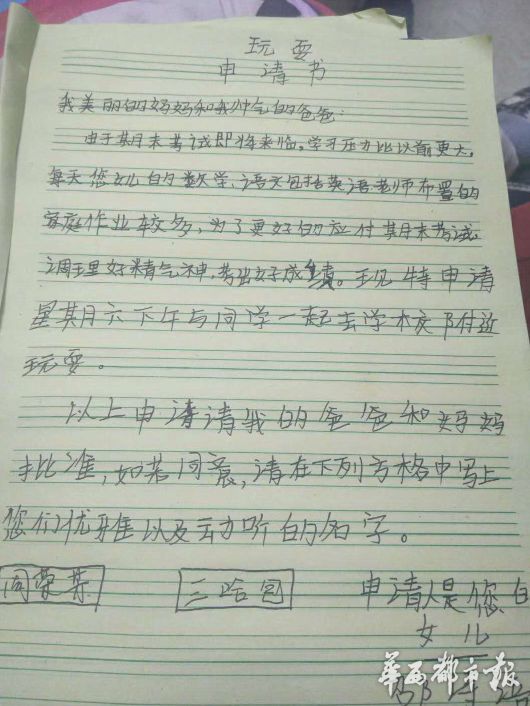 玩耍
申请书
我美丽的妈妈和我帅气的爸爸:
由于期末考试即将来临,学习压力比以前更大,
每天您女儿的数学、语文包括英语老师布置的
家庭作业较多,为了更好的应付期末考试
调理好精气神,考出好成绩。现特申请
星期六下午与同学一起去学校附近
玩耍。
以上申请请我的爸爸和妈妈
批准,如若同意,请在下列方格中写上
您们优雅以及动听的名字。
三哈包 申请人是您白
女儿
华西都市报